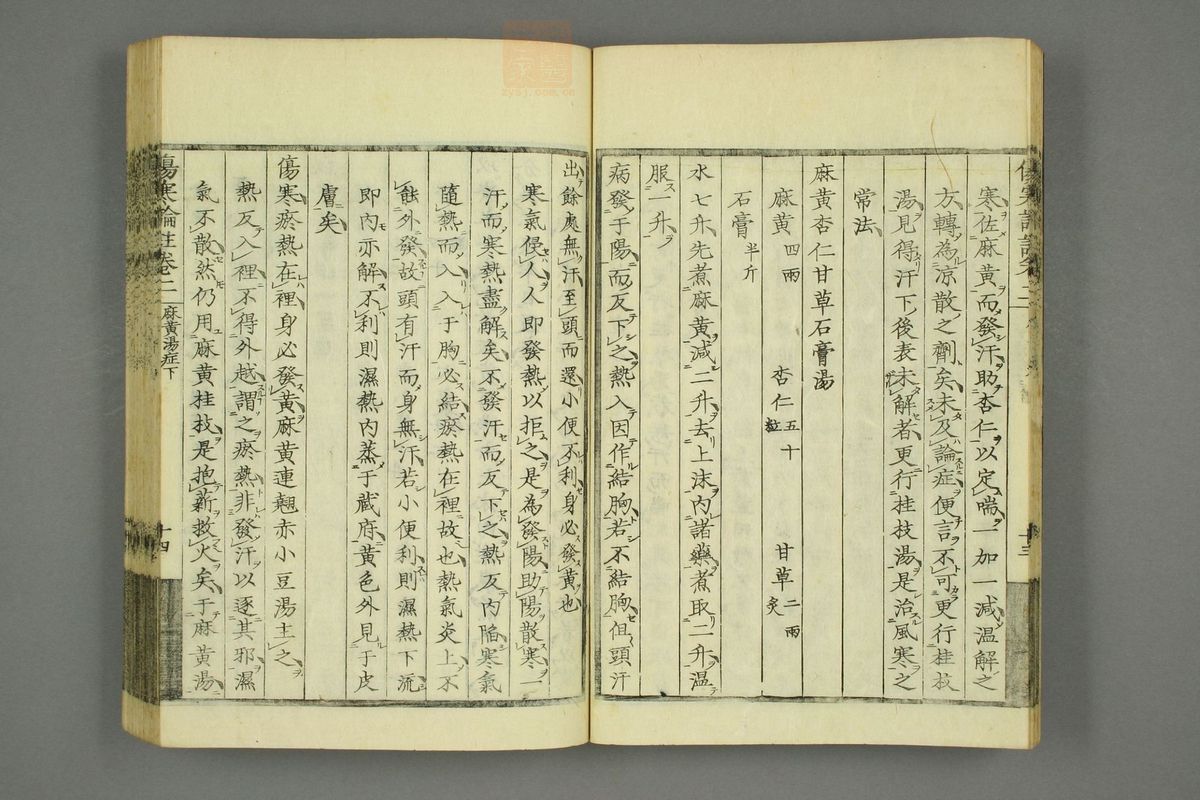 寒佐麻黄而發汗助杏仁以定喘一加一減温解之
方轉為凉散之劑矣未及論症便言不可更行桂枝
湯見得汗下後表未解者更行桂枝湯是治風寒之
常法
麻黄杏仁甘草石膏湯
麻黄四兩 杏仁五十粒 甘草二兩炙
石膏半斤
水七升先煮麻黄減二升去上沫内諸藥煮取二升温
服一升
病發于陽而反下之熱入因作結胸若不結胸但頭汗
十三
出餘處無汗至頭而還小便不利身必發黄也
寒氣侵人人即發熱以拒之是為發陽助陽散寒一
汗而寒熱盡解矣不發汗而反下之熱反内陥寒氣
隨熱而入入于胸必結瘀熱在裡故也熱氣炎上不
能外發故頭有汗而身無汗若小便利則濕熱下流
即内亦解不利則濕熱内蒸于蔵府黄色外見于皮
膚矣
傷寒瘀熱在裡身必發黄麻黄連翹赤小豆湯主之
熱反入裡不得外越謂之瘀熱非發汗以逐其邪濕
氣不散然仍用麻黄桂枝是抱薪救火矣于麻黄湯
傷寒論註卷二 麻黄湯症下 十四
zysj.com.cn